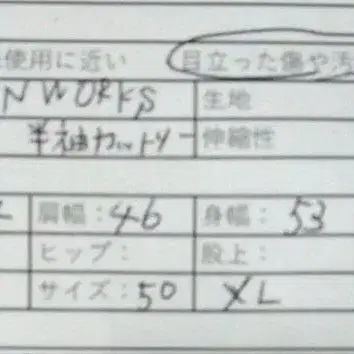 使用に近い 目立った傷や汚
N WORKS 生地
半袖カットソー 伸縮性
肩幅：46 身幅：53
ヒップ： 股上：
サイズ：50 XL